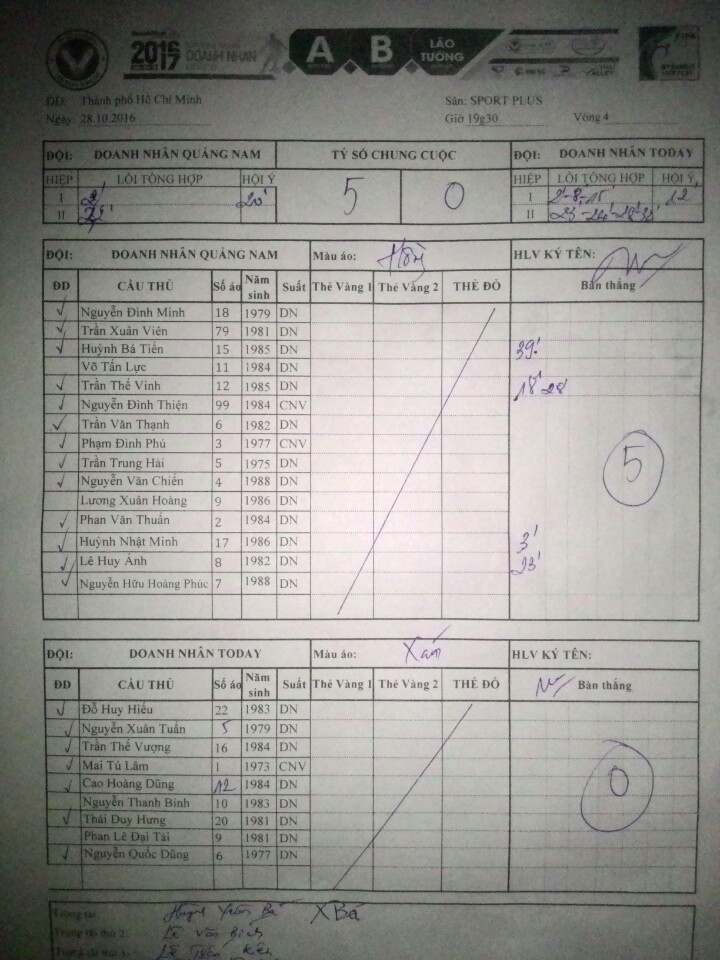 2016
2017
DOANH NHÂN
A B LÃO TƯỚNG
FIFA
DD: Thành phố Hồ Chí Minh Sân: SPORT PLUS
Ngày 28.10.2016 Giờ 19g30 Vòng 4
ĐỘI: DOANH NHÂN QUẢNG NAM TỶ SỐ CHUNG CUỘC ĐỘI: DOANH NHÂN TODAY
HIỆP LỖI TỔNG HỢP HỘI Ý 5 0 HIỆP LỖI TỔNG HỢP HỘI Ý
I 20' I 2'-8-15' 12'
II II
ĐỘI: DOANH NHÂN QUẢNG NAM Màu áo: HLV KÝ TÊN:
ĐD CẦU THỦ Số áo Năm sinh Suất Thẻ Vàng 1 Thẻ Vàng 2 THẺ ĐỎ Bàn thắng
Nguyễn Đình Minh 18 1979 DN
Trần Xuân Viên 79 1981 DN
Huỳnh Bá Tiến 15 1985 DN 39'
Võ Tấn Lực 11 1984 DN
Trần Thế Vinh 12 1985 DN 18' 28'
Nguyễn Đình Thiện 99 1984 CNV
Trần Văn Thạnh 6 1982 DN
Phạm Đình Phú 3 1977 CNV
Trần Trung Hải 5 1975 DN 5
Nguyễn Văn Chiến 4 1988 DN
Lương Xuân Hoàng 9 1986 DN
Phan Văn Thuấn 2 1984 DN
Huỳnh Nhật Minh 17 1986 DN 3'
Lê Huy Ánh 8 1982 DN 23'
Nguyễn Hữu Hoàng Phúc 7 1988 DN
ĐỘI: DOANH NHÂN TODAY Màu áo: Xám HLV KÝ TÊN:
ĐD CẦU THỦ Số áo Năm sinh Suất Thẻ Vàng 1 Thẻ Vàng 2 THẺ ĐỎ Bàn thắng
Đỗ Huy Hiếu 22 1983 DN
Nguyễn Xuân Tuấn 5 1979 DN
Trần Thế Vượng 16 1984 DN
Mai Tú Lâm 1 1973 CNV
Cao Hoàng Dũng 12 1984 DN 0
Nguyễn Thanh Bình 10 1983 DN
Thái Duy Hưng 20 1981 DN
Phan Lê Đại Tài 9 1981 DN
Nguyễn Quốc Dũng 6 1977 DN
Trọng tài: X Bá
Trọng tài thứ 2: